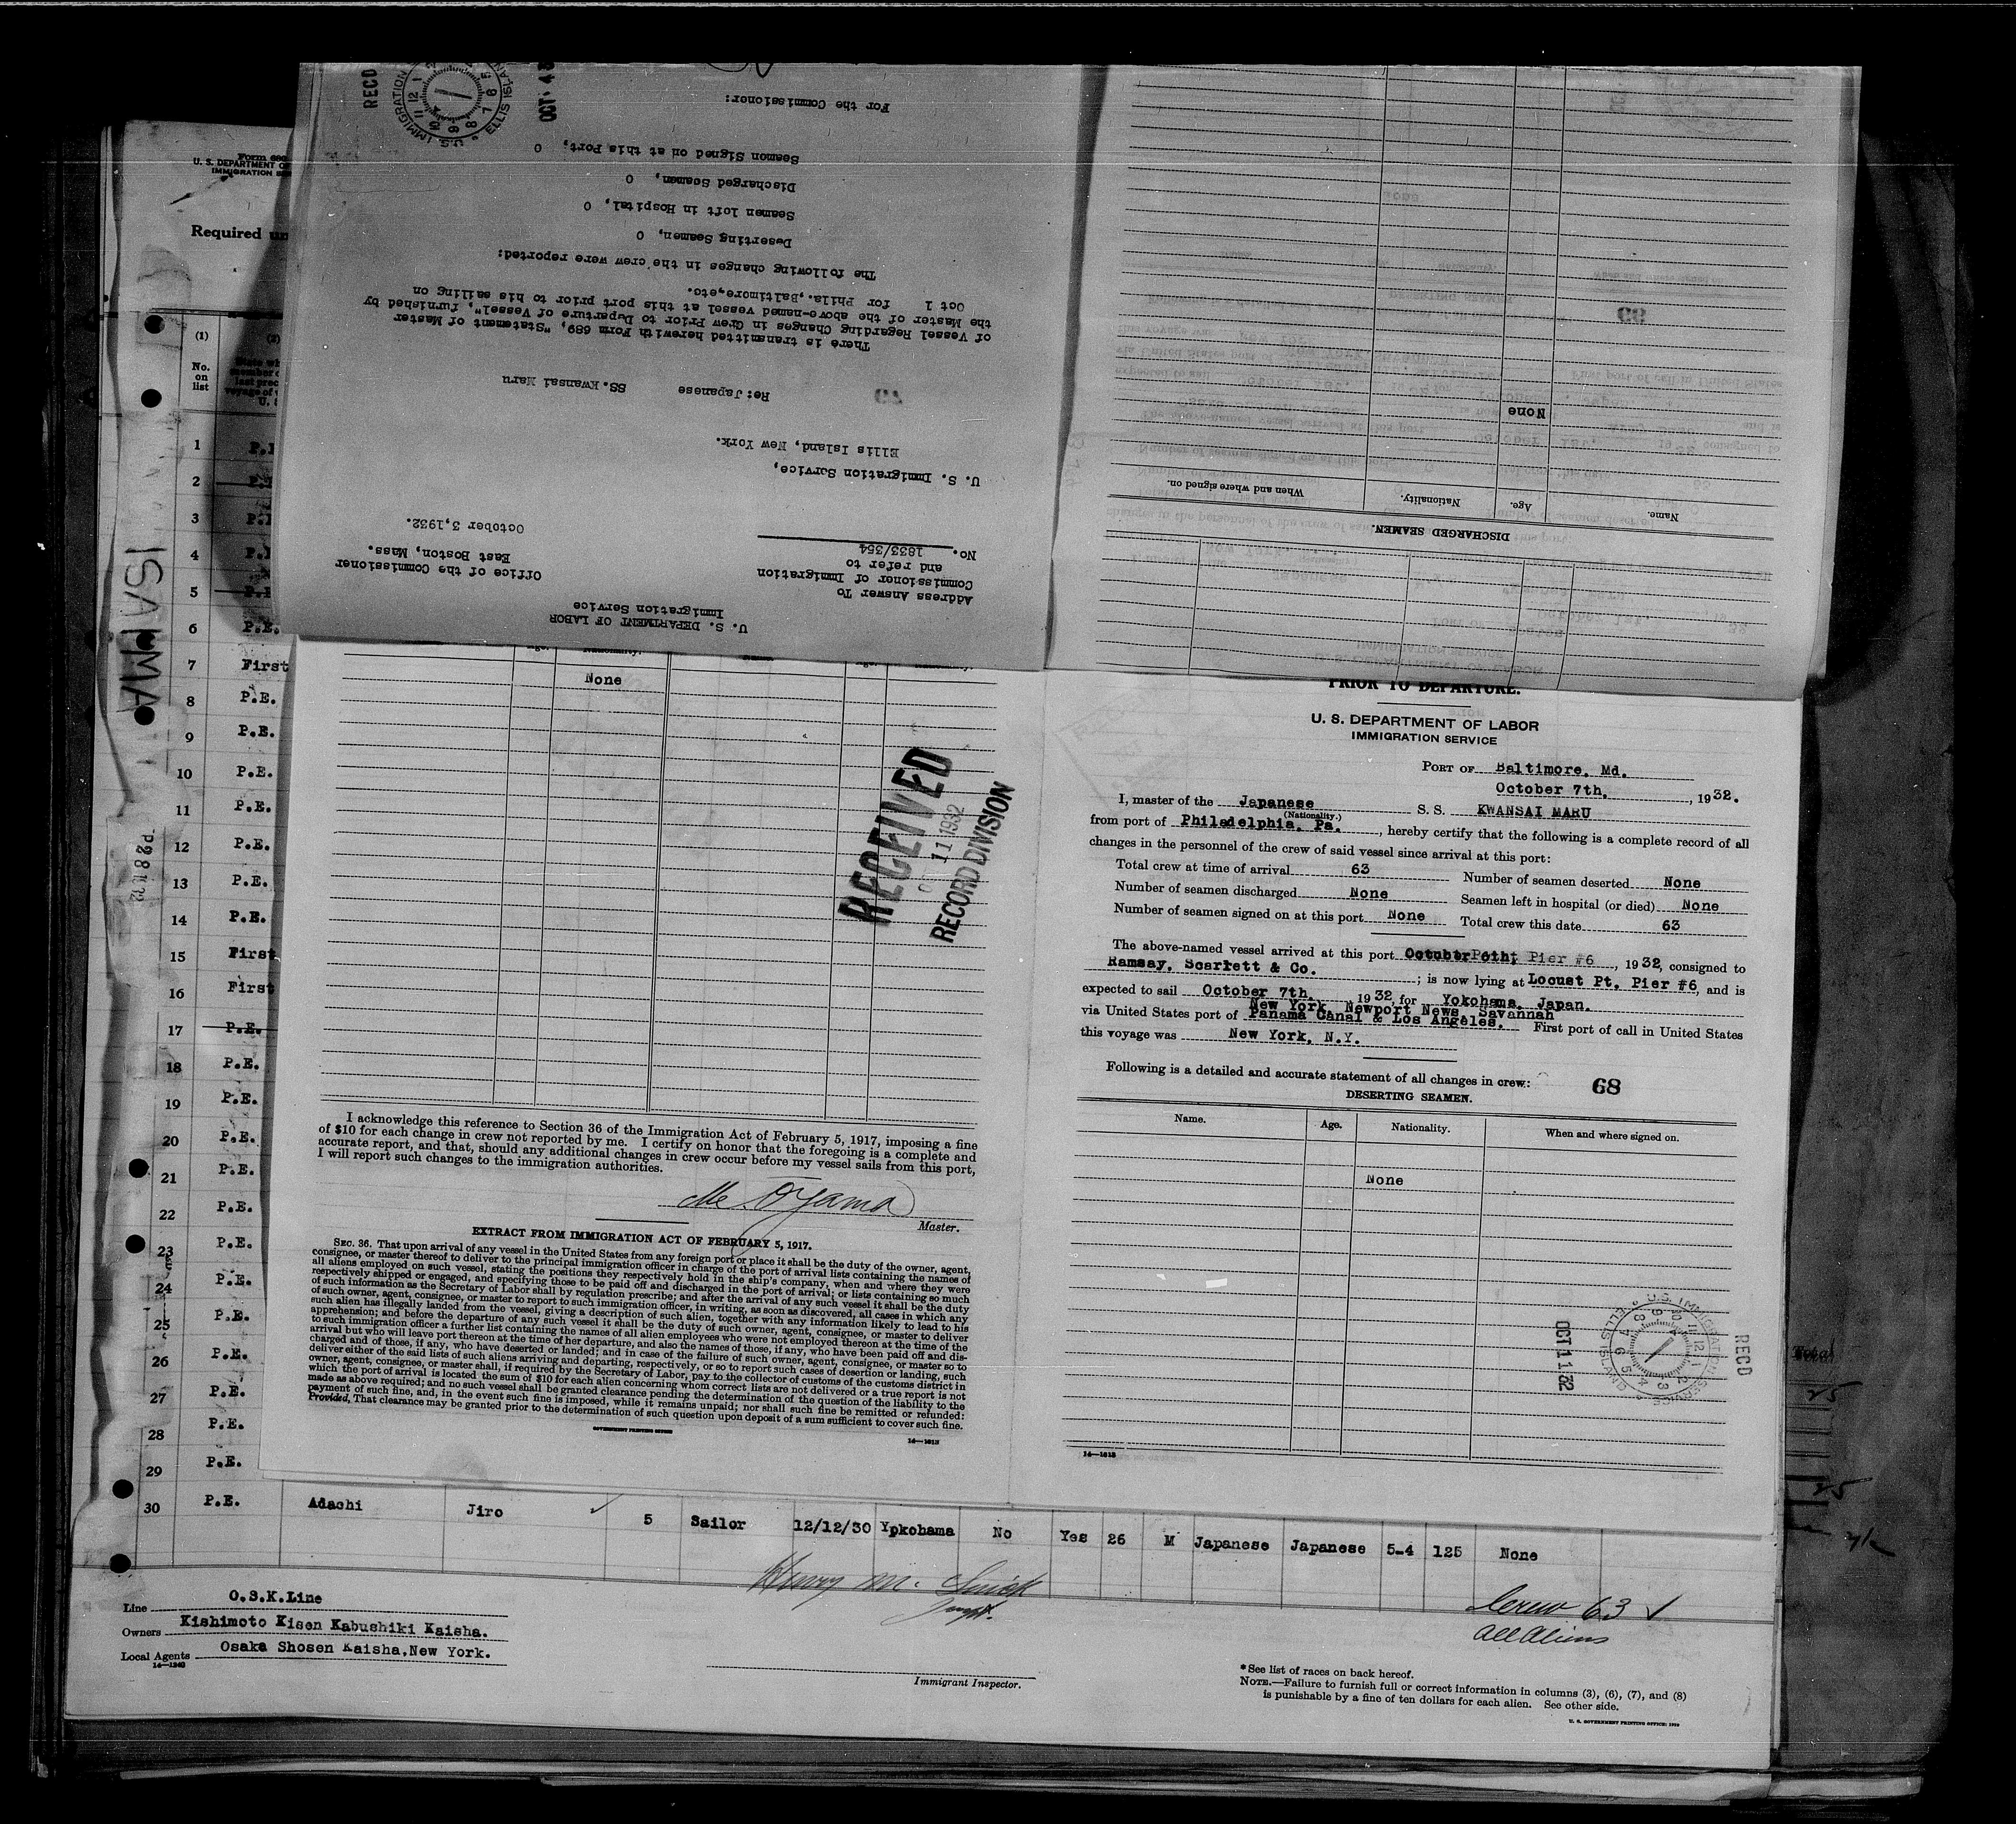 U. S. DEPARTMENT OF LABOR
Immigration Service
Address Answer To
Commissioner of Immigration
and refer to
No. 1833/354
Office of the Commissioner
East Boston, Mass.
October 3,1932.
U. S. Immigration Service,
Ellis Island, New York.
Re:Japanese SS.Kwansai Maru
There is transmitted herewith Form 689, "Statement of Master
of Vessel Regarding Changes in Crew Prior to Departure of Vessel", furnished by
the Master of the above-named vessel at this port prior to his sailing on
Oct 1 for Phila.,Baltimore,etc.
The following changes in the crew were reported:
Deserting Seamen, 0
Seamen left in Hospital, 0
Discharged Seamen, 0
Seamen Signed on at this Port, 0
For the Commissioner:
RECD
U.S. IMMIGRATION
ELLIS ISLAN
OCT 4 3
DISCHARGED SEAMEN.
Name. Age. Nationality. When and where signed on.
None
U. S. DEPARTMENT O
Required un
(1)
No.
on
list
ISAPMA
1 P.
2 P.
3 P.
4 P.
5 P.
6 P.E.
7 First
8 P.E.
9 P.E.
10 P.E.
11 P.E.
12 P.E.
13 P.E.
14 P.E.
15 First
16 First
17 P.E.
18 P.E.
19 P.E.
20 P.E.
21 P.E.
22 P.E.
23 P.E.
24 P.E.
25 P.E.
26 P.E.
27 P.E.
28 P.E.
29 P.E.
30 P.E. Adachi Jiro ✓ 5 Sailor 12/12/30 Yokohama No Yes 26 M Japanese Japanese 5-4 125 None
None
RECEIVED
11 1932
RECORD DIVISION
I acknowledge this reference to Section 36 of the Immigration Act of February 5, 1917, imposing a fine
of $10 for each change in crew not reported by me. I certify on honor that the foregoing is a complete and
accurate report, and that, should any additional changes in crew occur before my vessel sails from this port,
I will report such changes to the immigration authorities.
M. Oyama
Master.
EXTRACT FROM IMMIGRATION ACT OF FEBRUARY 5, 1917.
SEC. 36. That upon arrival of any vessel in the United States from any foreign port or place it shall be the duty of the owner, agent,
consignee, or master thereof to deliver to the principal immigration officer in charge of the port of arrival lists containing the names of
all aliens employed on such vessel, stating the positions they respectively hold in the ship's company, when and where they were
respectively shipped or engaged, and specifying those to be paid off and discharged in the port of arrival; or lists containing so much
of such information as the Secretary of Labor shall by regulation prescribe; and after the arrival of any such vessel it shall be the duty
of such owner, agent, consignee, or master to report to such immigration officer, in writing, as soon as discovered, all cases in which any
such alien has illegally landed from the vessel, giving a description of such alien, together with any information likely to lead to his
apprehension; and before the departure of any such vessel it shall be the duty of such owner, agent, consignee, or master to deliver
to such immigration officer a further list containing the names of all alien employees who were not employed thereon at the time of the
arrival but who will leave port thereon at the time of her departure, and also the names of those, if any, who have been paid off and dis-
charged and of those, if any, who have deserted or landed; and in case of the failure of such owner, agent, consignee, or master so to
deliver either of the said lists of such aliens arriving and departing, respectively, or so to report such cases of desertion or landing, such
owner, agent, consignee, or master shall, if required by the Secretary of Labor, pay to the collector of customs of the customs district in
which the port of arrival is located the sum of $10 for each alien concerning whom correct lists are not delivered or a true report is not
made as above required; and no such vessel shall be granted clearance pending the determination of the question of the liability to the
payment of such fine, and, in the event such fine is imposed, while it remains unpaid; nor shall such fine be remitted or refunded:
Provided, That clearance may be granted prior to the determination of such question upon deposit of a sum sufficient to cover such fine.
GOVERNMENT PRINTING OFFICE 14—1613
PRIOR TO DEPARTURE.
U. S. DEPARTMENT OF LABOR
IMMIGRATION SERVICE
PORT OF Baltimore, Md.
October 7th, , 1932.
I, master of the Japanese S. S. KWANSAI MARU
(Nationality.)
from port of Philadelphia, Pa. , hereby certify that the following is a complete record of all
changes in the personnel of the crew of said vessel since arrival at this port:
Total crew at time of arrival 63 Number of seamen deserted None
Number of seamen discharged None Seamen left in hospital (or died) None
Number of seamen signed on at this port None Total crew this date 63
The above-named vessel arrived at this port October Pier #6 , 1932, consigned to
Ramsay, Scarlett & Co. ; is now lying at Locust Pt. Pier #6, and is
expected to sail October 7th. 1932, for Yokohama, Japan.
New York, Newport News, Savannah
via United States port of Panama Canal & Los Angeles. First port of call in United States
this voyage was New York, N.Y.
Following is a detailed and accurate statement of all changes in crew: 68
DESERTING SEAMEN.
Name. Age. Nationality. When and where signed on.
None
OCT 11 32
U.S. IMMIGRATION SERVICE
ELLIS ISLAND
RECD
14—1613
Total
25
25
Henry M.
Crew 63 ✓
All Aliens
Line O.S.K.Line
Owners Kishimoto Kisen Kabushiki Kaisha.
Local Agents Osaka Shosen Kaisha,New York.
14—1240
Immigrant Inspector.
*See list of races on back hereof.
NOTE.—Failure to furnish full or correct information in columns (3), (6), (7), and (8)
is punishable by a fine of ten dollars for each alien. See other side.
U. S. GOVERNMENT PRINTING OFFICE: